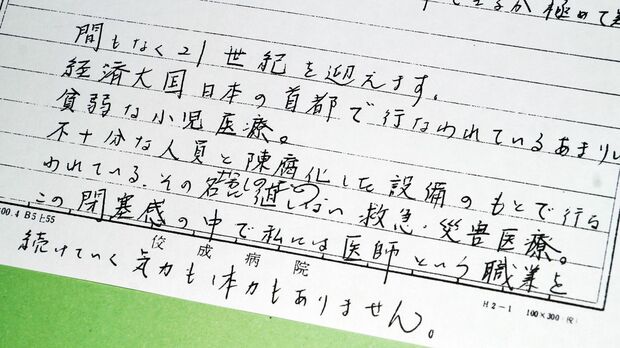 極めて
間もなく21世紀を迎えます。
経済大国日本の首都で行なわれているあまりに
貧弱な小児医療。
不十分な人員と陳腐化した設備のもとで行な
われている、その 値しない 救急・災害医療。
この閉塞感の中で私には医師という職業を
佼成病院
H2-1 100×300
続けていく気力も体力もありません。